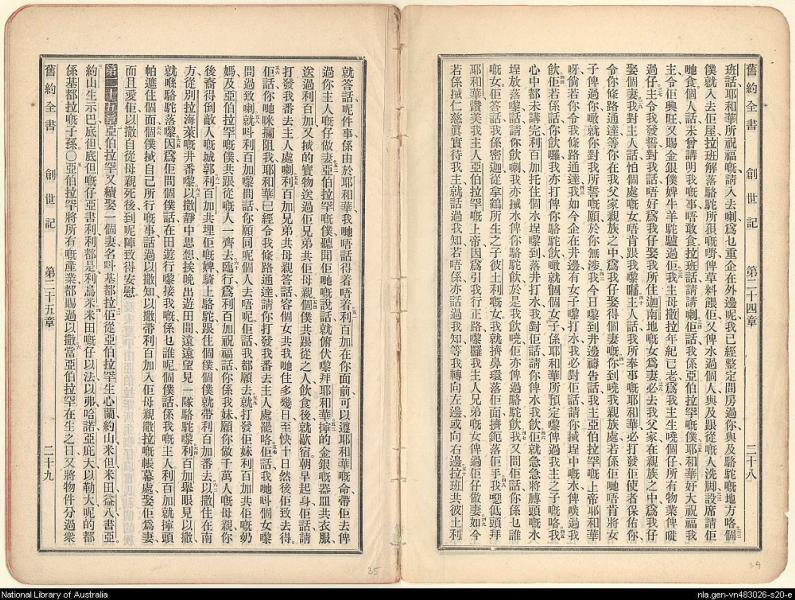 舊約全書 創世記 第二十四章 二十八
班話、耶和華所祝福嘅、請入去喇、爲乜重企在外邊呢、我已經整定間房、過你與及駱駝嘅地方咯、個
僕就入去佢屋、拉班解落駱駝所狠嘅嘢、俾草料餵佢、又俾水過個人、與及跟從嘅人洗脚、設席請佢
哋食、個人話、未曾講明我嘅事、唔敢食、拉班話、請講、佢話、我係亞伯拉罕嘅僕、耶和華好大祝福我
主、令佢興旺、又賜金銀僕婢牛羊駝驢過佢、我主母撒拉年紀已老、爲我主生嘵個仔、所有物業俾嘵
過仔、主令我發誓、對我話、唔好爲我仔娶我所住迦南地嘅女爲妻、必去我父家、在親族之中、爲我仔
娶個妻、我對主人話、怕個處嘅女唔肯跟我嚟囉、主人話、我所奉事嘅耶和華、必打發佢使者保佑你、
令你條路通達、等你在我父家親族之中、爲我仔娶得個妻嘅、你到嘵我親族處、若係佢哋唔肯將女
子俾過你、噉就你對我所誓嘅願、於你無涉、今日嚟到井邊、禱告話、我主亞伯拉罕嘅上帝耶和華
呀、倘若你令我條路通達、我如今企在井邊、有女子嚟打水、我必對佢話、請你埕中嘅水、俾啖過我
飲、佢若係話、你飲囉、我亦打俾你駱駝飲、噉就令個個女子、係耶和華所預定嚟俾過我主之子嘅咯、我
心中都未講完、利百加托住個水埕嚟到、落井打水、我對佢話、請你俾水我飲、佢就急急將膊頭嘅水
埕放落嚟、話請你飲喇、我亦水俾你駱駝飲、於是我飲嘵、佢亦俾過駱駝飲、我又問佢話、你係乜誰
嘅女、佢答話、我係密迦從拿鶴所生之子彼土利嘅女、我就擠鼻環落佢面、擠鈪落佢手、我低頭拜
耶和華、讚美我主人亞伯拉罕嘅上帝、因爲引我行正路嚟、囉我主人兄弟嘅女、俾過佢仔做妻、如今
若係仁慈眞實待我主、就話過我知、若唔係、亦話過我知、等我轉向左邊或向右邊、拉班共彼土利
就答話、呢件事係由於耶和華、我哋唔話得着唔着、利百加在你面前、可以遵耶和華嘅命、帶佢去俾
過你主人嘅仔做妻、亞伯拉罕嘅僕、聽聞佢哋嘅說話、就俯伏嚟拜耶和華、金銀嘅器皿共衣服、
送過利百加、又寶物送過佢兄弟共佢母親、個僕共跟從之人、飲食後就歇宿、朝早起身、佢話請
打發我番去主人處喇、利百加兄弟共母親答話、容個女共我哋住多幾日、至快十日、然後佢致去得、
佢話你哋咪攔阻我、耶和華已經令我條路通達、請你打發我番去主人處罷咯、佢話我哋呌個女嚟
問過致喇、就呌利百加嚟問話、你願同呢個人去唔呢、佢話我都願去、就打發佢妹利百加、共佢嘅奶
媽、及亞伯拉罕嘅僕、共跟從嘅人、一齊去、臨行爲利百加祝福話、你係我妹、願你做千萬人嘅母親、你
後裔得倒敵人嘅城、郭利百加共埋佢嘅婢、騎上駱駝、跟住個僕、個僕就帶利百加番去、以撒住在南
方、從別拉海萊嘅井番嚟、以撒靜中思想、挨晚出遊田間、遠遠望見一隊駱駝嚟、利百加舉眼見以撒、
就落駱駝、因爲佢問個僕話、在田遊行嚟接我嘅、係乜誰呢、個僕話、係我嘅主人、利百加就頭
帕遮住個面、個僕自己所行嘅事、話過以撒知、以撒帶利百加入佢母親撒拉嘅帳幕處、娶佢爲妻、
而且愛佢、以撒自從母親死後、到呢陣致得安慰、
第二十五章 亞伯拉罕又續娶一個妻、名呌基都拉、佢從亞伯拉罕生心蘭、約山、米但、米田、益八、書亞、
約山生示巴、底但、底但嘅仔、亞書利、利都是利、烏米、米田嘅仔、以法、以弗、哈諾、亞庇大、以勒大、呢的都
係基都拉嘅子孫、〇亞伯拉罕將所有嘅產業、都賜過以撒、當亞伯拉罕在生之日、又將物件分過衆
舊約全書 創世記 第二十五章 二十九
35
34
National Library of Australia
nla.gen-vn483026-s20-e